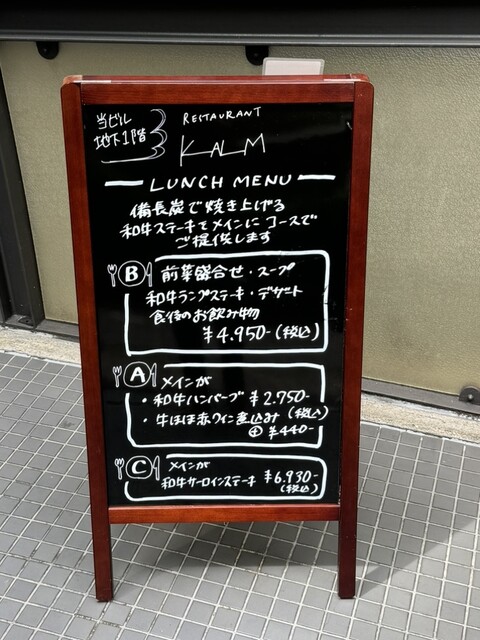 当ビル
地下1階
RESTAURANT
KALM
LUNCH MENU
備長炭で焼き上げる
和牛ステーキをメインにコースで
ご提供します
B 前菜盛合せ・スープ
和牛ランプステーキ・デザート
食後のお飲み物
¥4.950-(税込)
A メインが
・和牛ハンバーグ ¥2.750-
・牛ほほ赤ワイン煮込み (税込)
⊕ ¥440-
C メインが
和牛サーロインステーキ ¥6.930-
(税込)